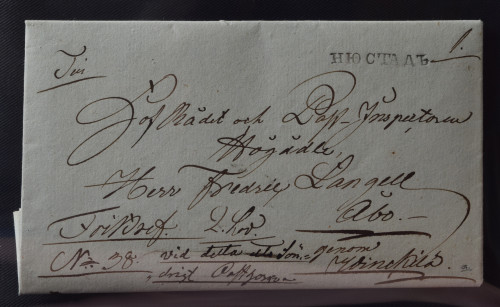 Till
НЮСТАДЪ
HofRådet och Post-Inspectoren
Högädle,
Herr Fredric Langell
Åbo.
Fribref 2. Lod.
No 38. vid detta genom